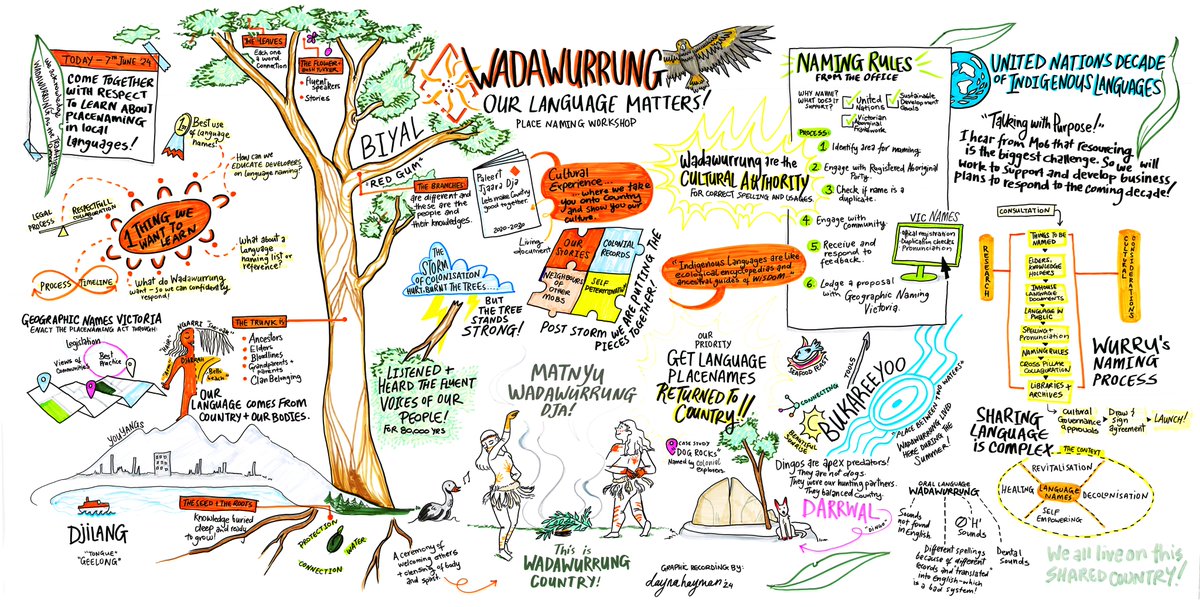 We acknowledge the
WADAWURRUNG as the Traditional
TODAY - 7TH JUNE '24
COME TOGETHER
WITH RESPECT
TO LEARN ABOUT
PLACENAMING
in local
languages!
THE LEAVES
Each one
a word
connection
THE FLOWER +
BUSH TUCKER
• Fluent
speakers
• Stories
BIYAL
"RED GUM"
WADAWURRUNG
OUR LANGUAGE MATTERS!
PLACE NAMING WORKSHOP
NAMING RULES
FROM THE OFFICE
WHY NAME?
WHAT DOES IT
SUPPORT?
United
Nations
Sustainable
Development
Goals
Victorian
Aboriginal
Framework
PROCESS:
1 Identify area for naming.
2 Engage with Registered Aboriginal
Party.
3 Check if name is a
duplicate.
4 Engage with
Community.
5 Receive and
respond to
feedback.
6 Lodge a proposal
with Geographic Naming
Victoria.
VIC NAMES
Official registration
Duplication checks
Pronunciation
UNITED NATIONS DECADE
OF INDIGENOUS LANGUAGES
"Talking with Purpose!"
I hear from Mob that resourcing
is the biggest challenge. So we will
work to support and develop business
plans to respond to the coming decade!
1st
Best use
of language
names?
How can we
EDUCATE DEVELOPERS
on language naming?
LEGAL
PROCESS
RESPECTFUL
COLLABORATION
1 THING WE
WANT TO LEARN
What about a
Language
naming list or
reference?
PROCESS
TIMELINE
What do Wadawurrung
want - so we can confidently
respond!
THE BRANCHES
are different and
these are the
people and
their knowledges.
Paleert
Tjaara Dja
Lets make Country
good together.
2020-2030
Living
document
Cultural
Experience...
...where we take
you onto Country
and show you our
culture.
OUR
STORIES
COLONIAL
RECORDS
NEIGHBOURS
OF OTHER
MOBS
SELF
DETERMINATION
POST STORM
WE ARE PUTTING THE
PIECES TOGETHER!
THE STORM
OF COLONISATION
HURT. BURNT THE TREES...
BUT
THE TREE
STANDS
STRONG!
Wadawurrung are the
CULTURAL AUTHORITY
FOR CORRECT SPELLING AND USAGES
"Indigenous Languages are like
ecological encyclopedias and
ancestral guides of WISDOM"
CONSULTATION
RESEARCH
CULTURAL
CONSIDERATIONS
THINGS TO BE
NAMED
ELDERS,
KNOWLEDGE
HOLDERS
INHOUSE
LANGUAGE
DOCUMENTS
LANGUAGE IN
PUBLIC
SPELLING +
Pronunciation
NAMING RULES
CROSS PILLAR
COLLABORATION
LIBRARIES +
ARCHIVES
cultural
Governance
approvals
Draw /
sign
agreement
LAUNCH!
WURRU's
NAMING
PROCESS
GEOGRAPHIC NAMES VICTORIA
ENACT THE PLACENAMING ACT THROUGH:
Legislation
Views of
Communities
Best
Practice
OUR
LANGUAGE COMES FROM
COUNTRY + OUR BODIES.
THE TRUNK IS
• Ancestors
• Elders
• Bloodlines
• Grandparents +
parents
• Clan Belonging
LISTENED +
HEARD THE FLUENT
VOICES OF OUR
PEOPLE!
FOR 80,000 YRS
MATNYU
WADAWURRUNG
DJA!
OUR
PRIORITY
GET LANGUAGE
PLACENAMES
RETURNED TO
COUNTRY!!
SEAFOOD FEAST
CONNECTING
TOOLS
BEAUTIFUL
SUNRISE
BUKAREEYOO
"PLACE BETWEEN TWO WATERS"
WADAWURRUNG LIVED
HERE DURING THE
SUMMER!
CASE STUDY
"DOG ROCKS"
Named by colonial
explorers
Dingos are apex predators!
They are not dogs.
They were our hunting partners.
They balanced Country.
DARRWAL
"Dingo"
SHARING
LANGUAGE
IS COMPLEX...
THE CONTEXT
REVITALISATION
HEALING
LANGUAGE
NAMES
DECOLNISATION
SELF
EMPOWERING
ORAL LANGUAGE
WADAWURRUNG
Sounds
not found
in English
'H'
Sounds
Dental
Sounds
Different spellings
because of different
records and translated
into English - which
is a bad system!
YOUYANGS
DJILANG
"TONGUE"
"GEELONG"
THE SEED + THE ROOTS
Knowledge buried
deep and ready
to grow!
PROTECTION
WATER
CONNECTION
A ceremony of
welcoming others
+ cleansing of body
and spirit.
This is
WADAWURRUNG
COUNTRY!
GRAPHIC RECORDING BY:
daynahayman '24
We all live on this
SHARED COUNTRY!